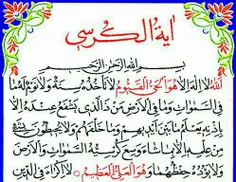 اية الكرسي
بسم الله الرحمن الرحيم
الله لا اله الا هو الحي القيوم لا تأخذه سنة ولا نوم له ما
في السموات وما في الارض من ذا الذي يشفع عنده الا
باذنه يعلم ما بين ايديهم وما خلفهم ولا يحيطون بشيء
من علمه الا بما شاء وسع كرسيه السموات والارض
ولا يؤده حفظهما وهو العلي العظيم لا اكراه في الدين